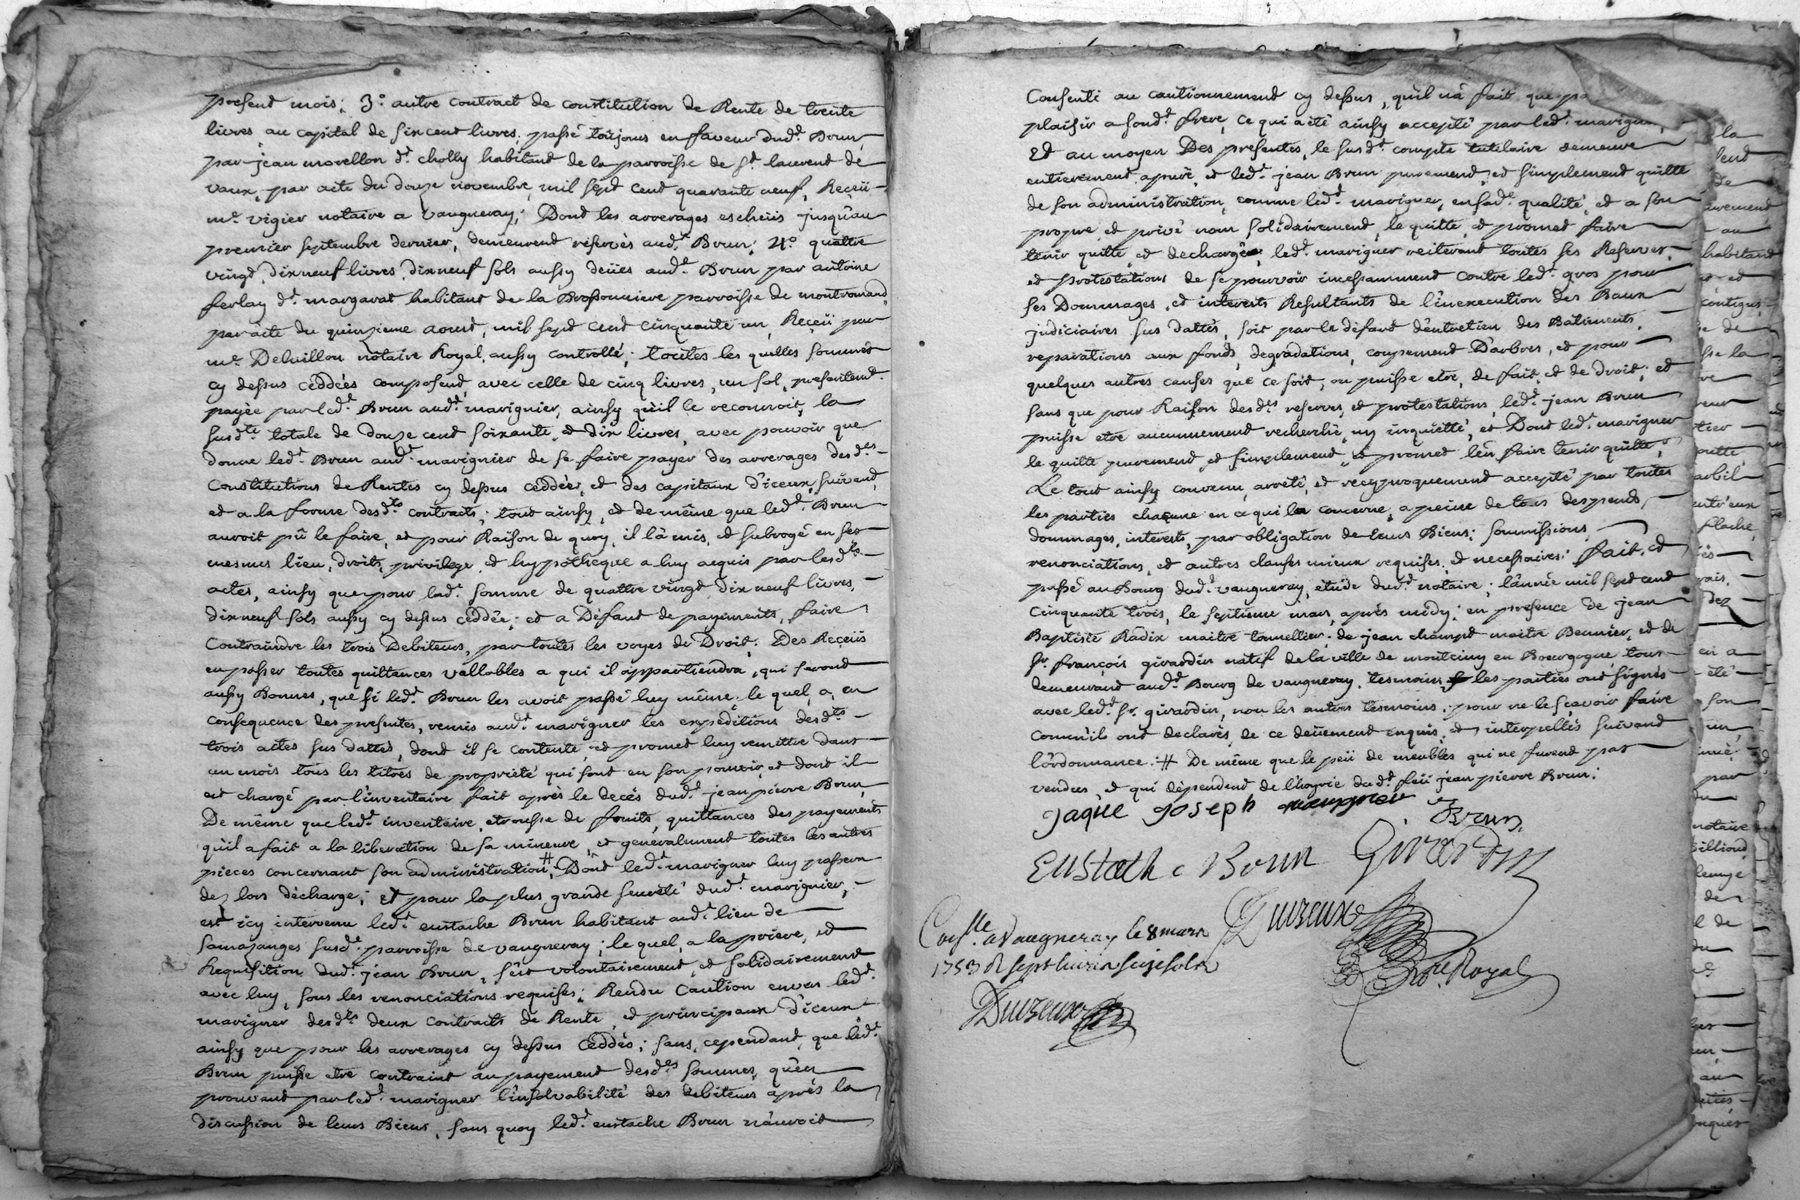 present mois; 3.° autre contract de constitution de Rente de trente
livres au capital de six cent livres. passé toujours en faveur dud.t Brun,
par jean morellon d.t cholly habitant de la parroisse de S.t laurend de
vaux, par acte du douze novembre, mil sept cent quarante neuf, Reçeü
m.e vigier notaire a vaugneray; Dont les arrerages escheüs jusqu'au
premier septembre dernier, demeurent réservés aud.t Brun; 4.° quattre
vingt dixneuf livres, dixneuf sols aussy deües aud.t Brun par antoine
ferlay d.t margarat habitant de la Brossonniere parroisse de montromand,
par acte du quinzieme aoust, mil sept cent cinquante un, Reçeü par
m.e Deluillon notaire Royal, aussy controllé; toutes les quelles sommes
cy dessus céddées composent, avec celle de cinq livres, un sol, presentement
payée par led.t Brun aud.t marignier, ainsy qu'il le reconnoit, la
susd.te totale de douze cent soixante et dix livres, avec pouvoir que
donne led.t Brun aud.t marignier de se faire payer des arrerages desd.es
Constitutions de Rentes cy dessus céddées, et des capitaux d'iceux, suivant
et a la forme desd.ts contracts; tout ainsy, et de même que led.t Brun
auroit pû le faire, et pour Raison de quoy, il l'a mis, et subrogé en ses
mesmes lieu, droits, privilege, et hypotheque a luy acquis par lesd.ts
actes, ainsy que pour lad.t somme de quattre vingt dix neuf livres,
dixneuf sols aussy cy dessus céddée; et a Défaut de payements, faire
Contraindre les trois Debiteurs, par toutes les voyes de Droit; Des Reçeüs
en passer toutes quittances vallables a qui il appartiendra, qui seront
aussy Bonnes, que si led.t Brun les avoit passé luy même; le quel, a, en
consequence des presentes, remis aud.t marignier les expéditions desd.ts
trois actes sus dattés, dont il se contente, et promet luy remettre dans
un mois tous les titres de propriété qui sont en son pouvoir, et dont il
est chargé par l'inventaire fait après le decés dud.t jean pierre Brun,
De même que led.t inventaire, etrousse de fruits, quittances des payements
qu'il a fait a la liberation de sa mineure, et generalement toutes les autres
pieces concernant son administration #; Dont led.t marignier luy passera
dez lors décharge; et pour la plus grande seureté dud.t marignier,
est icy intervenu led.t eustache Brun habitant aud.t lieu de
Samazanges susd.te parroisse de vaugneray; le quel, a la priere, et
Requisition dud.t jean Brun, s'est volontairement, et solidairement
avec luy, sous les renonciations requises; Rendu Caution envers led.t
marignier desd.ts deux contracts de Rente, et principaux d'iceux,
ainsy que pour les arrerages cy dessus Céddés; sans, cependant, que led.t
Brun puisse etre contraint au payement desd.es sommes, qu'en
prouvant par led.t marignier l'insolvabilité des debiteurs après la
discussion de leurs Biens, sans quoy led.t eustache Brun n'auroit
Consenti au cautionnement cy dessus, qu'il n'a fait que
plaisir a sond.t frere, ce qui a été ainsy accepté par led.t marignier,
Et au moyen Des presentes, le susd.t compte tutelaire demeure
entierement apuré, et led.t jean Brun purement, et simplement quitte
de son administration, comme led.t marignier, en sad.t qualité, et a son
propre, et privé nom solidairement, le quitte, et promet faire
tenir quitte, et decharge; led.t marignier reiterant toutes ses Reserves,
et protestations de se pourvoir incessamment contre led.t gros pour
ses Dommages, et interests Resultants de l'inexecution des Baux
judiciaires sus dattés, soit par le défaut d'entretien des Batiments,
reparations aux fonds, degradations, coupement D'arbres, et pour
quelques autres causes que ce soit, ou puisse etre, de fait, et de droit; et
sans que pour Raison desd.es reserves, et protestations, led.t jean Brun
puisse etre aucunnement recherché, ny inquiétté, et Dont led.t marignier
le quitte purement, et simplement, et promet l'en faire tenir quitte;
Le tout ainsy convenu, arreté, et recyproquement accepté par toutes
les parties chacune en ce qui la concerne, a peine de tous despends,
dommages, interests, par obligation de leurs Biens; soumissions,
renonciations, et autres clauses mieux requises, et necessaires: fait, et
passé au Bourg dud.t vaugneray, etüde dud.t notaire; l'année mil sept cent
cinquante trois, le septieme mars, après midy: en presence de jean
Baptiste Râdix maitre tonnellier, de jean champt maitre Beunier, et de
Sr. françois girardin natif de la ville de montciny en Bourgogne tous
demeurant aud.t Bourg de vaugneray, tesmoins; les parties ont signés
avec led.t Sr. girardin, non les autres tesmoins, pour ne le sçavoir faire
comm'il ont declarés de ce deüement enquis, et interpellés suivant
l'ordonnance. # De même que le peü de meubles qui ne furent pas
vendus, et qui dépendent de l'hoyrie dud.t feü jean pierre Brun;
jaque joseph marignier Brun
Eustache Brun Girardin
Duizeux
Not.re Royal
Con.lle a Vaugneray le 8 mars
1753
Duizeux